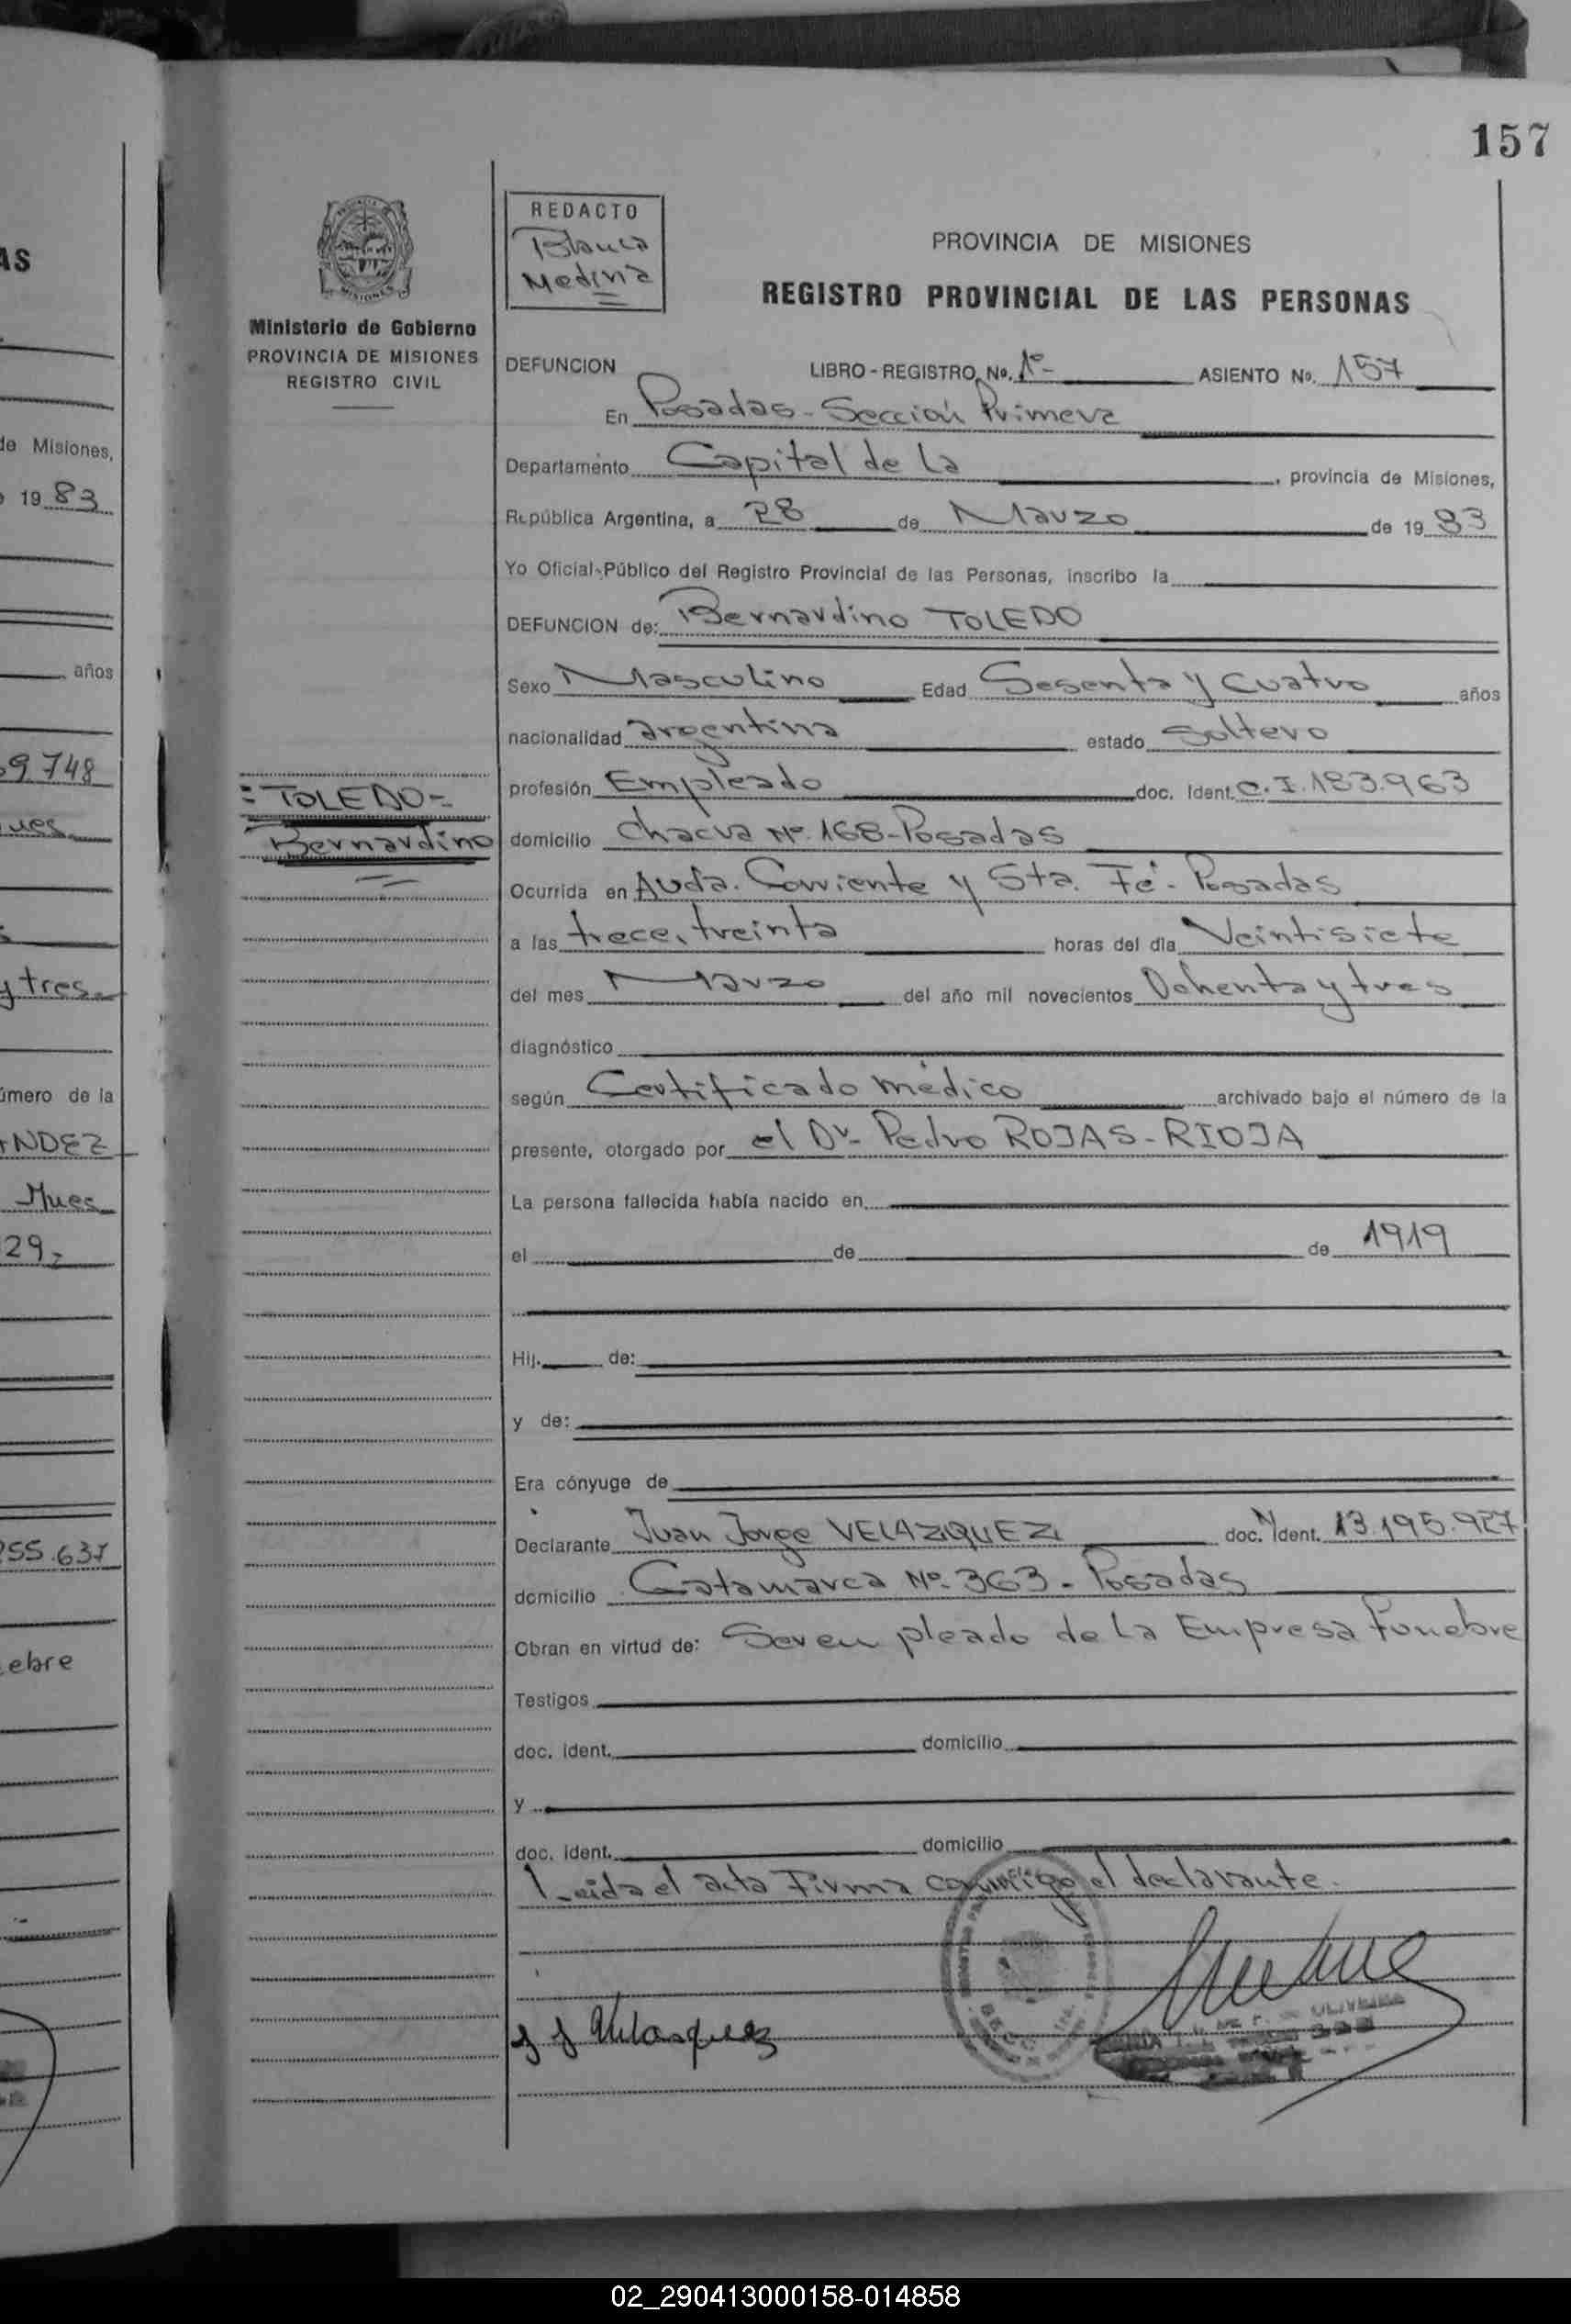 157
REDACTO
Blanca
Medina
PROVINCIA DE MISIONES
REGISTRO PROVINCIAL DE LAS PERSONAS
Ministerio de Gobierno
PROVINCIA DE MISIONES
REGISTRO CIVIL
DEFUNCION LIBRO - REGISTRO No. 1º- ASIENTO No. 157
En Posadas - Sección Primera
Departamento Capital de la , provincia de Misiones,
República Argentina, a 28 de Marzo de 19 83
Yo Oficial Público del Registro Provincial de las Personas, inscribo la
DEFUNCION de: Bernardino TOLEDO
Sexo Masculino Edad Sesenta y cuatro años
nacionalidad argentina estado Soltero
profesión Empleado doc. Ident. C.I. 183.963
= TOLEDO =
Bernardino
domicilio Chacra Nº 168 - Posadas
Ocurrida en Avda. Corriente y Sta. Fé - Posadas
a las trece, treinta horas del día Veintisiete
del mes Marzo del año mil novecientos Ochenta y tres
diagnóstico
según Certificado médico archivado bajo el número de la
presente, otorgado por el Dr. Pedro ROJAS - RIOJA
La persona fallecida había nacido en
el de de 1919
Hij. de:
y de:
Era cónyuge de
Declarante Juan Jorge VELAZQUEZ doc. Ident. 13.195.927
domicilio Catamarca Nº 363 - Posadas
Obran en virtud de: Ser empleado de la Empresa Funebre
Testigos
doc. ident. domicilio
y
doc. ident. domicilio
Leida el acta Firma conmigo el declarante.
J J Velasquez
AS
de Misiones,
19 83
años
9.748
y tres
número de la
NDEZ
29
255.637
ebre
02_290413000158-014858